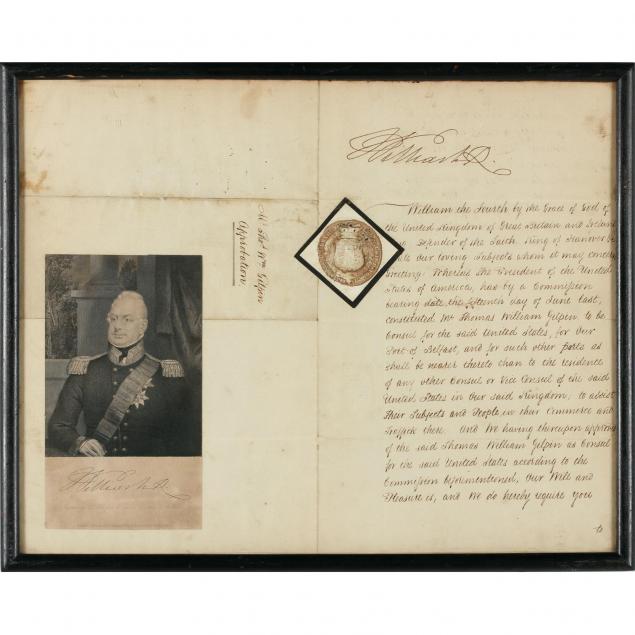 William R.
Mr. Thos Wm Gilpin
Approbation.
William the Fourth by the Grace of God of
the United Kingdom of Great Britain and Ireland
Defender of the Faith King of Hanover &c
all Our loving Subjects whom it may concern
Greeting. Whereas The President of the United
States of America, has by a Commission
bearing date the fifteenth day of June last,
constituted Mr. Thomas William Gilpin to be
Consul for the said United States, for Our
Port of Belfast, and for such other parts as
shall be nearer thereto than to the residence
of any other Consul or Vice Consul of the said
United States in Our said Kingdom; to assist
Their Subjects and People in their Commerce and
Traffick there. And We having thereupon approved
of the said Thomas William Gilpin as Consul
for the said United States according to the
Commission beforementioned, Our Will and
Pleasure is, and We do hereby require you
to
William R